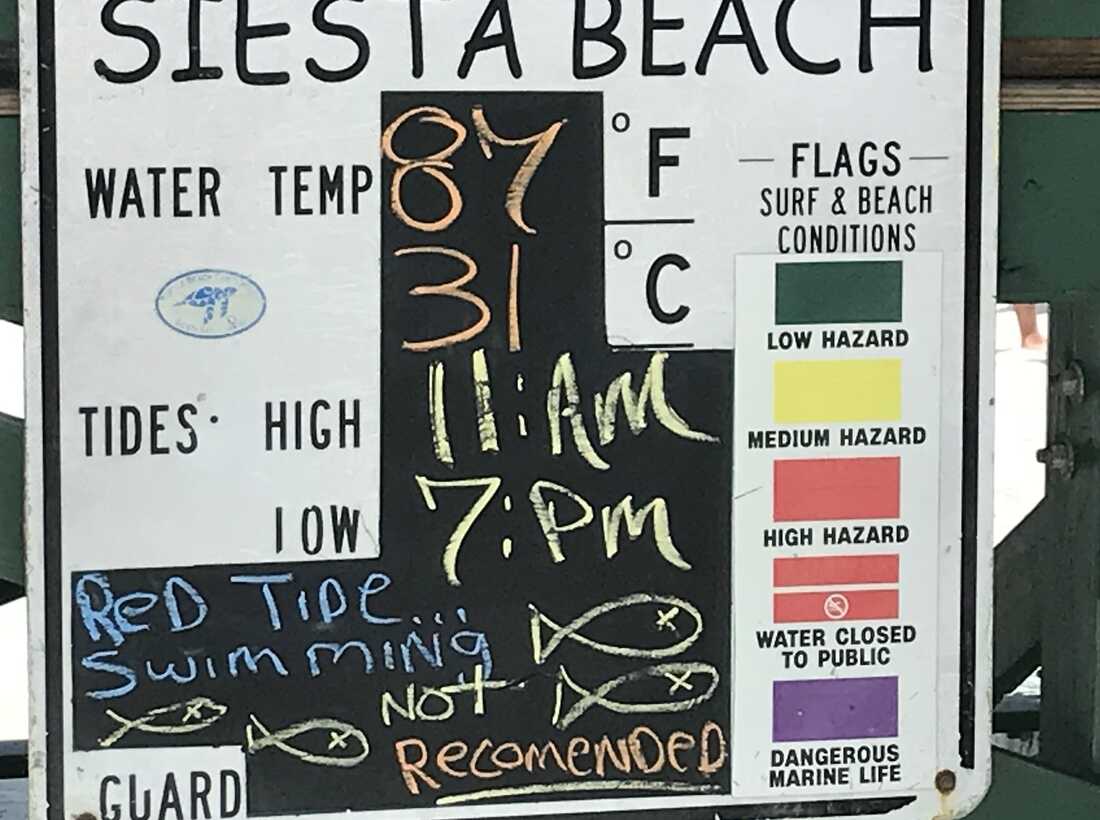 SIESTA BEACH
WATER TEMP 87 °F
31 °C
TIDES: HIGH 11:AM
LOW 7:PM
RED TIDE...
SWIMMING
NOT
RECOMENDED
GUARD
FLAGS
SURF & BEACH
CONDITIONS
LOW HAZARD
MEDIUM HAZARD
HIGH HAZARD
WATER CLOSED
TO PUBLIC
DANGEROUS
MARINE LIFE